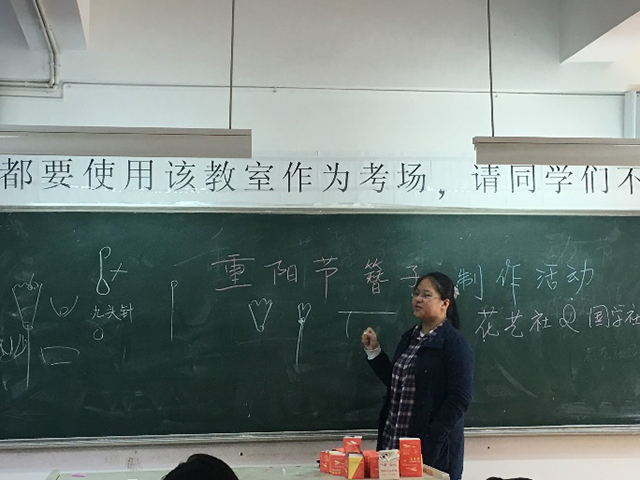 都要使用该教室作为考场，请同学们不
重阳节簪子制作活动
花艺社 & 国学社
九字针